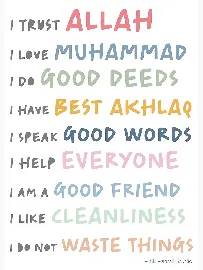 I TRUST ALLAH
I LOVE MUHAMMAD
I DO GOOD DEEDS
I HAVE BEST AKHLAQ
I SPEAK GOOD WORDS
I HELP EVERYONE
I AM A GOOD FRIEND
I LIKE CLEANLINESS
I DO NOT WASTE THINGS